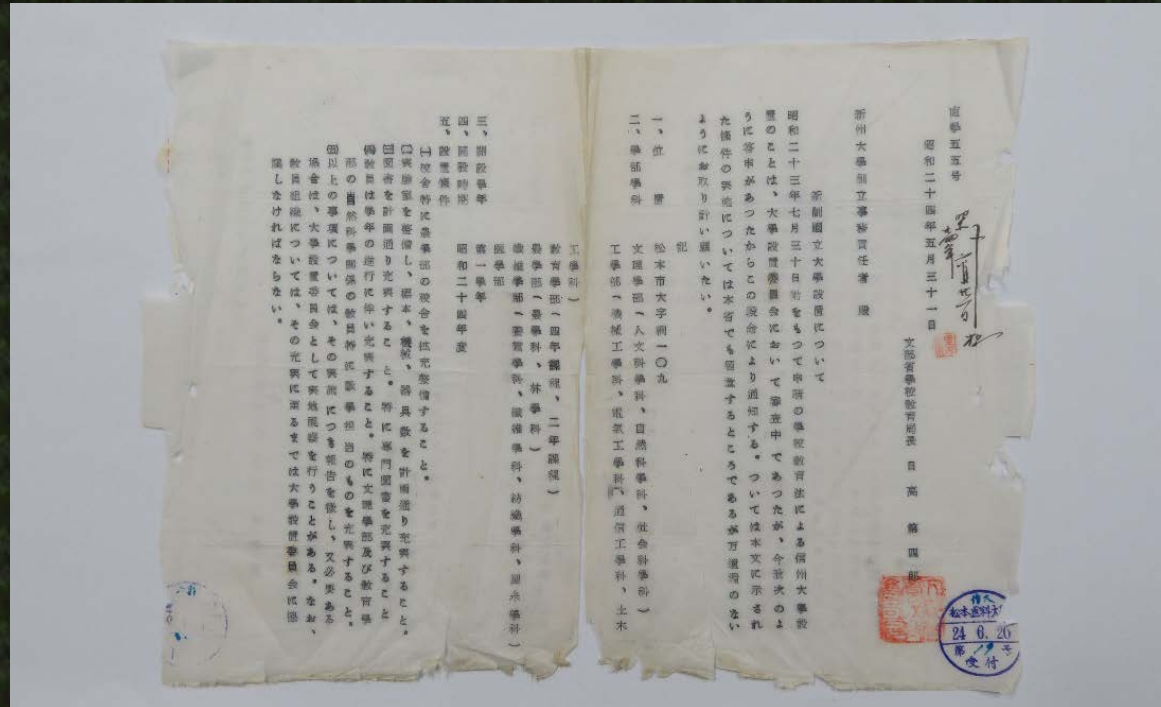 官學五五号
昭和二十四年五月三十一日
文部省學校教育局長 日高第四郎
新州大學創立事務責任者 殿
新制國立大學設置について
昭和二十三年七月三十日付をもつて申請の學校教育法による信州大學設
置のことは、大學設置委員会において審査中であつたが、今般次のよ
うに答申があつたからこの段命により通知する。ついては本文に示され
た條件の実施については本省でも留意するところであるが万遺漏のない
ようにお取り計い願いたい。
記
一、位置 松本市大字桐一〇九
二、學部學科 文理學部(人文科學科、自然科學科、社会科學科)
工學部(機械工學科、電氣工學科、通信工學科、土木
工學科)
教育學部(四年課程、二年課程)
農學部(農學科、林學科)
纖維學部(養蚕學科、纖維學科、紡織學科、製糸學科)
医學部
三、開設學年 第一學年
四、開設時期 昭和二十四年度
五、設置條件
(一)校舎特に農學部の校舎を拡充整備すること。
(二)実驗室を整備し、標本、機械、器具数を計画通り充実すること。
(三)図書を計画通り充実すること。特に専門図書を充実すること
(四)教員は學年の進行に伴い充実すること。特に文理學部及び教育學
部の自然科學関係の教員特に数學担当のものを充実すること。
(五)以上の事項については、その実施につき報告を徴し、又必要ある
場合は、大學設置委員会として実地視察を行うことがある。なお、
教員組織については、その充実に至るまでは大學設置委員会に協
議しなければならない。
24.6.26
受付